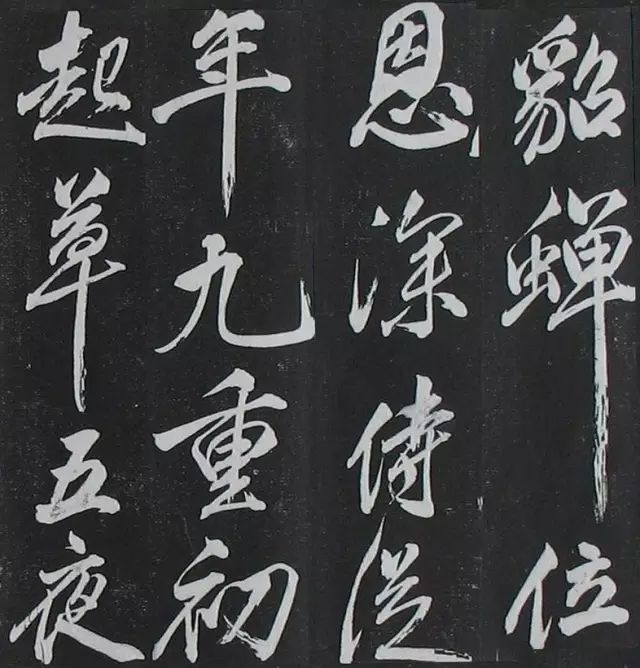 貂蝉位
恩深侍从
年九重初
起草五夜